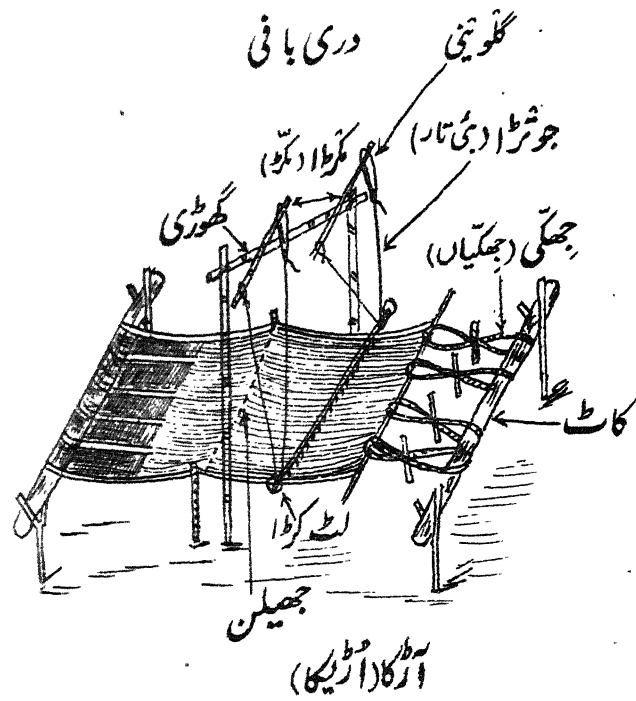 دری بافی
گلوٹنی
جوترا (بئی تار)
مکڑا (مکڑ)
گھوڑی
جھکّی (جھکیّاں)
کاٹ
لٹ کڑا
جھیلن
آڑکا (اُڑیکا)